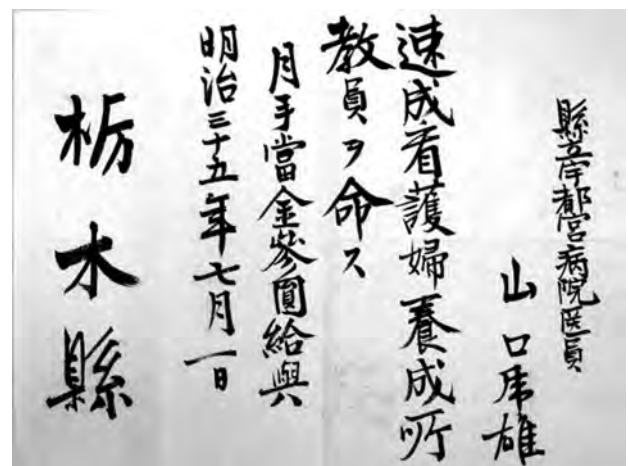 縣立宇都宮病院医員
山口虎雄
速成看護婦養成所
教員ヲ命ス
月手當金參圓給與
明治三十五年七月一日
栃木縣